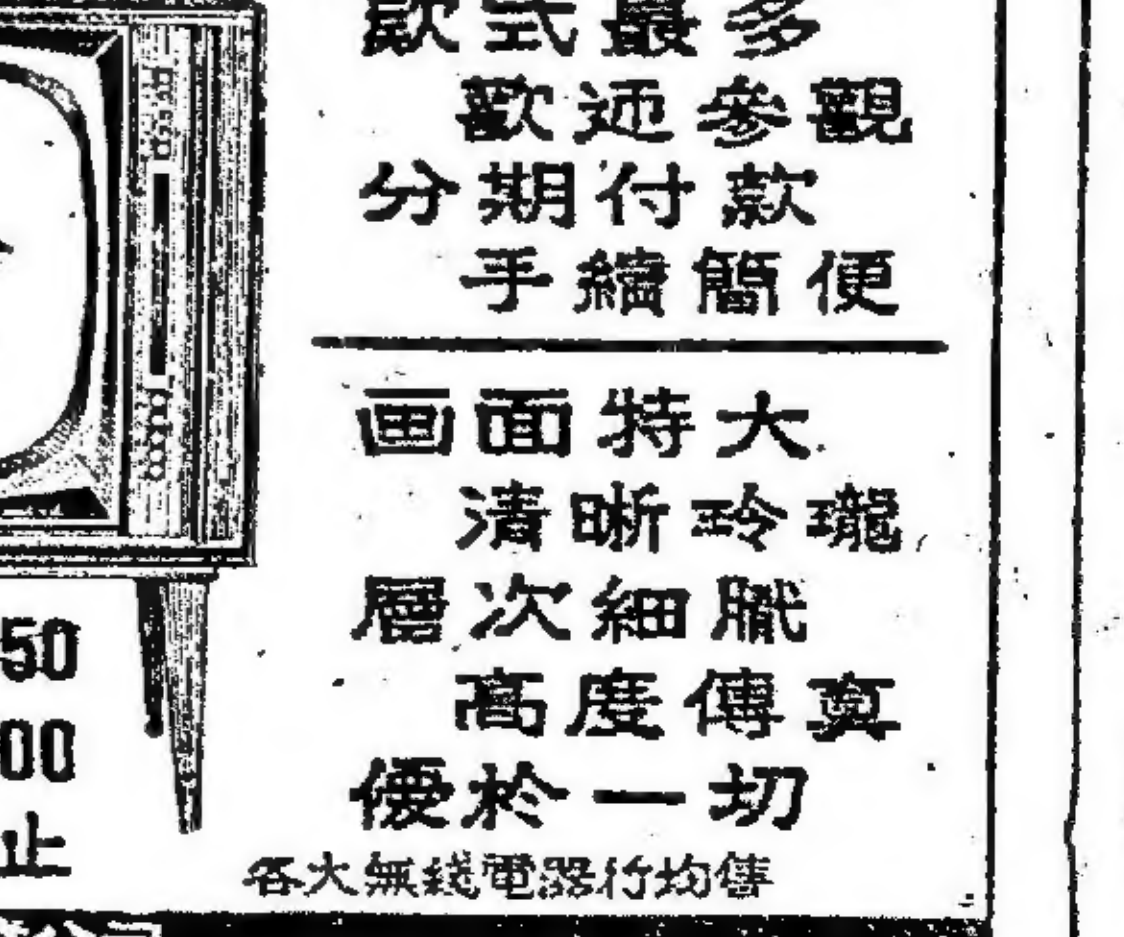 款式最多
歡迎參觀
分期付款
手續簡便
画面特大
清晰玲瓏
層次細膩
高度傳真
優於一切
各大無綫電器行均售
50
00
止